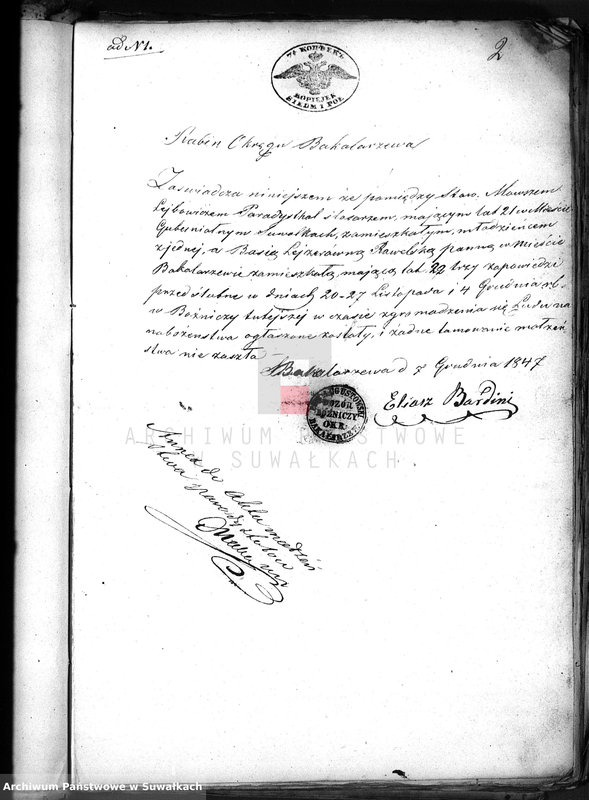 ad N 1.
2
7½ КОПѢЕКЪ
KOPIEJEK
SIEDM I PÓŁ
Rabin Okręgu Bakałarzewa
Zaświadcza niniejszem że pomiędzy Staro. Mowszem
Lejbowiczem Paradysthal stolarzem, mającym lat 21 w Mieście
Gubernialnym Suwałkach, zamieszkałym, młodzieńcem
z jednej, a Basią Lejzerowną Rawelską panną w Mieście
Bakałarzewie zamieszkałą, mającą lat 22 trzy zapowiedzi
przedślubne w dniach 20-27 Listopada i 4 Grudnia rb.
w Bożniczy tutejszej w czasie zgromadzenia się Ludu na
nabożeństwa ogłaszone zostały, i żadne tamowanie małżeń
stwa nie zaszło
Bakałarzewa d 7 Grudnia 1847
Eliasz Bardini
DOZÓR
BOŻNICZY
OKR.
Annex do Aktu małżeń
stwa
ARCHIWUM PAŃSTWOWE
W SUWAŁKACH
Archiwum Państwowe w Suwałkach